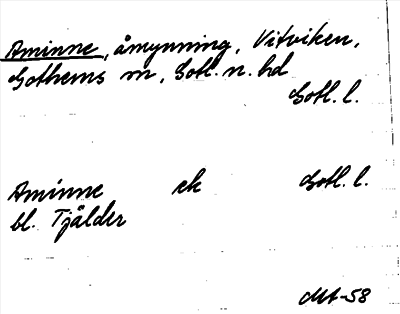 Aminne, åmynning, Vitviken,
Gothems sn, Gotl. n. hd
Gotl. l.
Aminne ek Gotl. l.
bl. Tjälder
-58